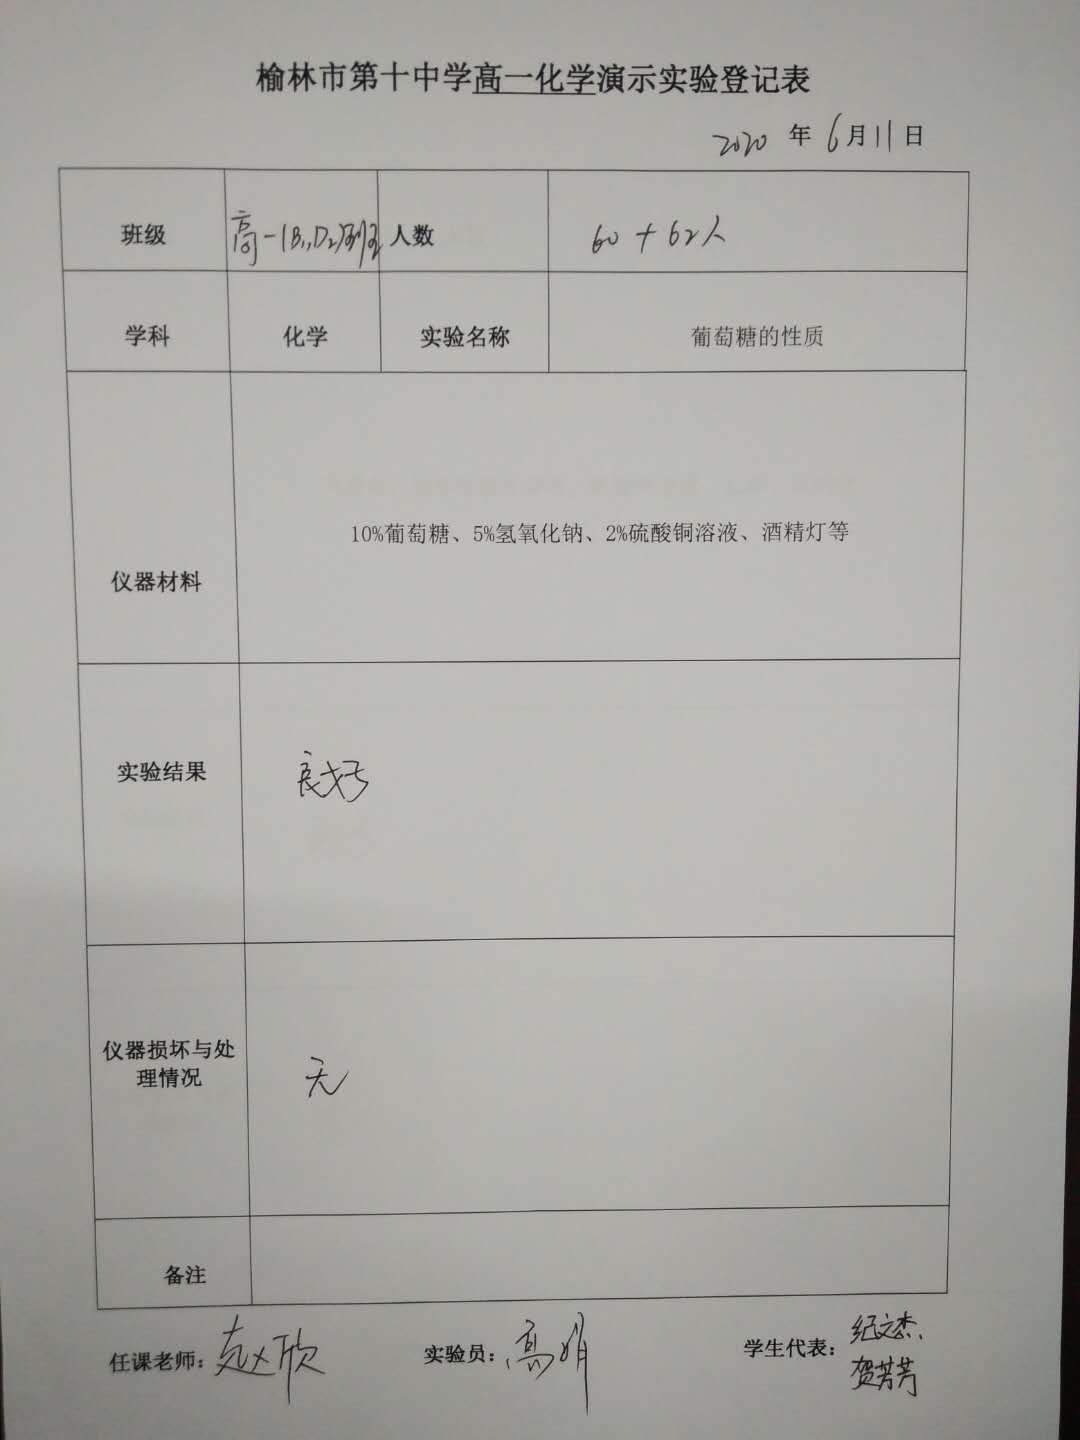 榆林市第十中学高一化学演示实验登记表
2020 年 6月11日
班级 高一(B11,D2)班 人数 60+62人
学科 化学 实验名称 葡萄糖的性质
10%葡萄糖、5%氢氧化钠、2%硫酸铜溶液、酒精灯等
仪器材料
实验结果 良好
仪器损坏与处
理情况
无
备注
任课老师：赵欣 实验员：高娟 学生代表：纪文杰、
贺芳芳